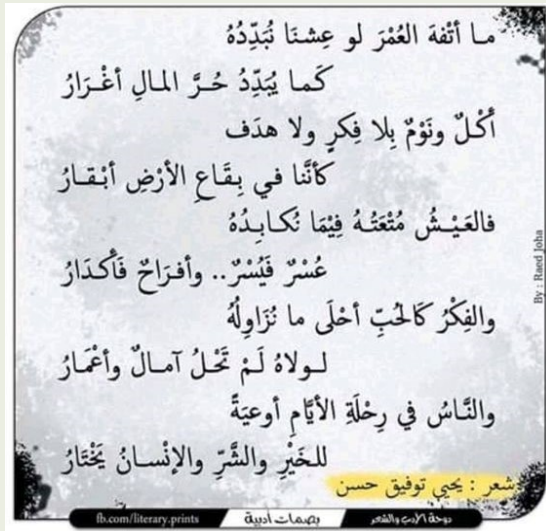 ما أتْفهَ العُمْرَ لو عِشنَا نُبَدِّدُهُ
كَما يُبَدِّدُ حُرَّ المالِ أغْرَارُ
أكْلٌ ونَوْمٌ بِلا فِكرٍ ولا هدَف
كأنَّنا في بِقَاعِ الأرْضِ أبْقارُ
فالعَيْشُ مُتْعَتُهُ فِيْمَا نُكابِدُهُ
عُسْرٌ فَيُسْرٌ.. وأفراحٌ فَأكْدَارُ
والفِكْرُ كَالحُبِّ أحْلَى ما نُزَاوِلُهُ
لولاهُ لَمْ تَحْلُ آمالٌ وأعْمَارُ
والنَّاسُ في رِحْلَةِ الأيَّامِ أوعيَةً
للخَيْرِ والشَّرِّ والإنْسانُ يَخْتَارُ
شعر : يحيى توفيق حسن
By : Raed Joha
دوحة الأدب والشعر
بصمات أدبية
fb.com/literary.prints